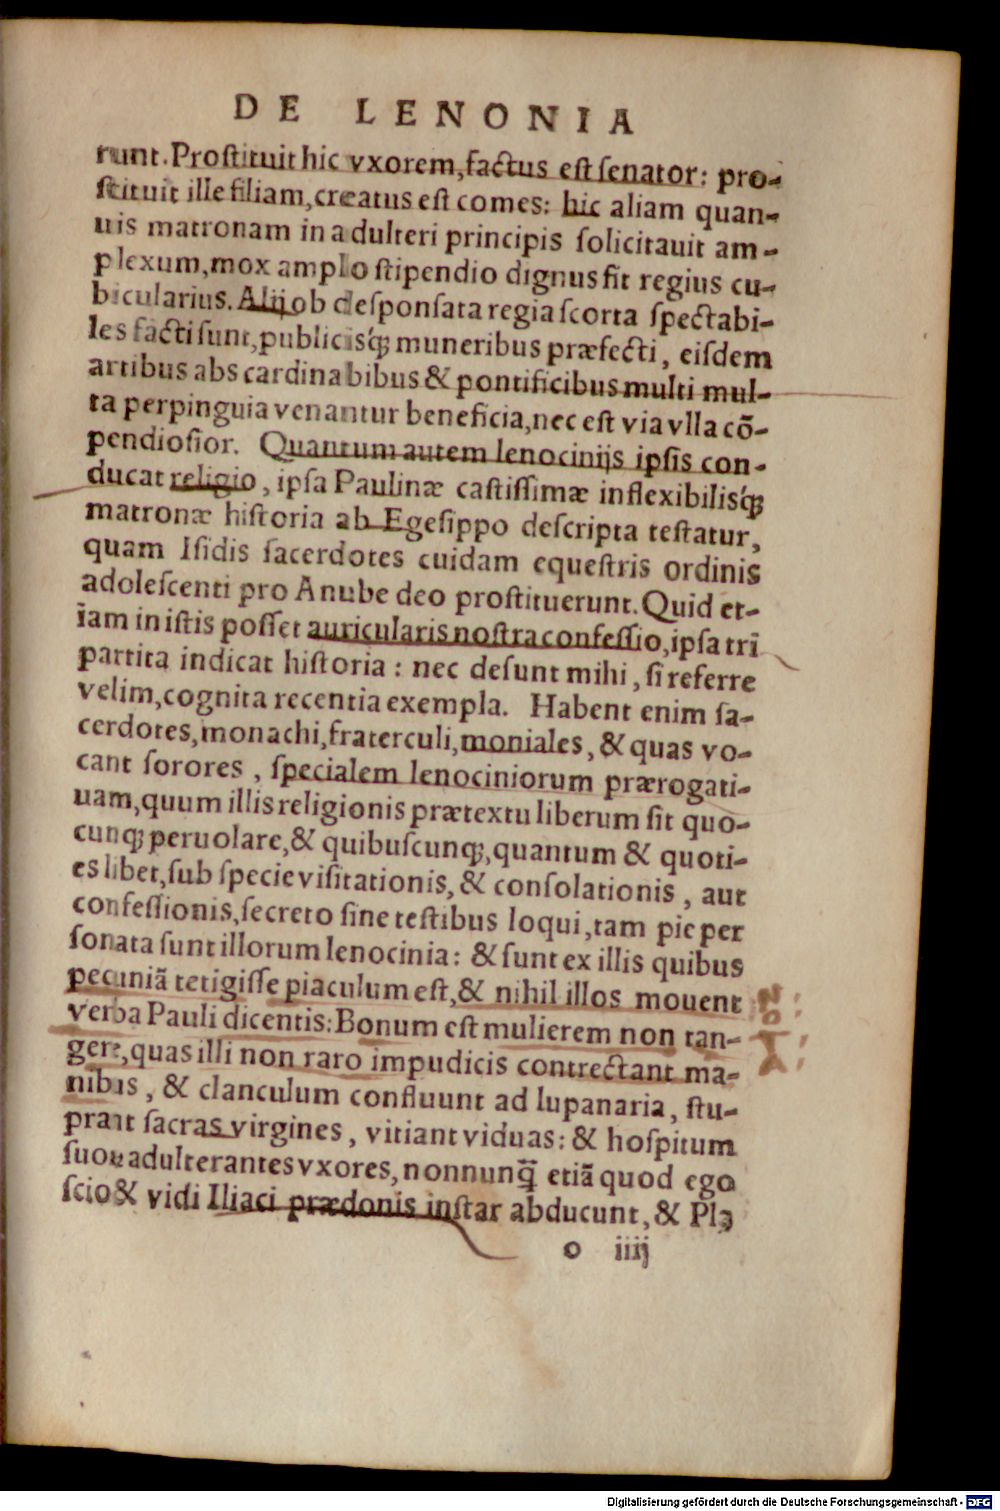 DE LENONIA
runt. Prostituit hic vxorem, factus est senator: pro-
stituit ille filiam, creatus est comes: hic aliam quan-
uis matronam in adulteri principis solicitauit am-
plexum, mox amplo stipendio dignus fit regius cu-
bicularius. Alij ob desponsata regia scorta spectabi-
les facti sunt, publicisq́; muneribus præfecti, eisdem
artibus abs cardinabibus & pontificibus multi mul-
ta perpinguia venantur beneficia, nec est via vlla cõ-
pendiosior. Quantum autem lenocinijs ipsis con-
ducat religio, ipsa Paulinæ castissimæ inflexibilisq́;
matronæ historia ab Egesippo descripta testatur,
quam Isidis sacerdotes cuidam equestris ordinis
adolescenti pro Anube deo prostituerunt. Quid et-
iam in istis posset auricularis nostra confessio, ipsa tri
partita indicat historia: nec desunt mihi, si referre
velim, cognita recentia exempla. Habent enim sa-
cerdotes, monachi, fraterculi, moniales, & quas vo-
cant sorores, specialem lenociniorum prærogati-
uam, quum illis religionis prætextu liberum sit quo-
cunq; peruolare, & quibuscunq;, quantum & quoti-
es libet, sub specie visitationis, & consolationis, aut
confessionis, secreto sine testibus loqui, tam pie per
sonata sunt illorum lenocinia: & sunt ex illis quibus
pecuniã tetigisse piaculum est, & nihil illos mouent
verba Pauli dicentis: Bonum est mulierem non tan-
gere, quas illi non raro impudicis contrectant ma-
nibus, & clanculum confluunt ad lupanaria, stu-
prant sacras virgines, vitiant viduas: & hospitum
suorũ adulterantes vxores, nonnunq̃ etiã quod ego
scio & vidi Iliaci prædonis instar abducunt, & Pla
o iiij
NoTA
Digitalisierung gefördert durch die Deutsche Forschungsgemeinschaft - DFG